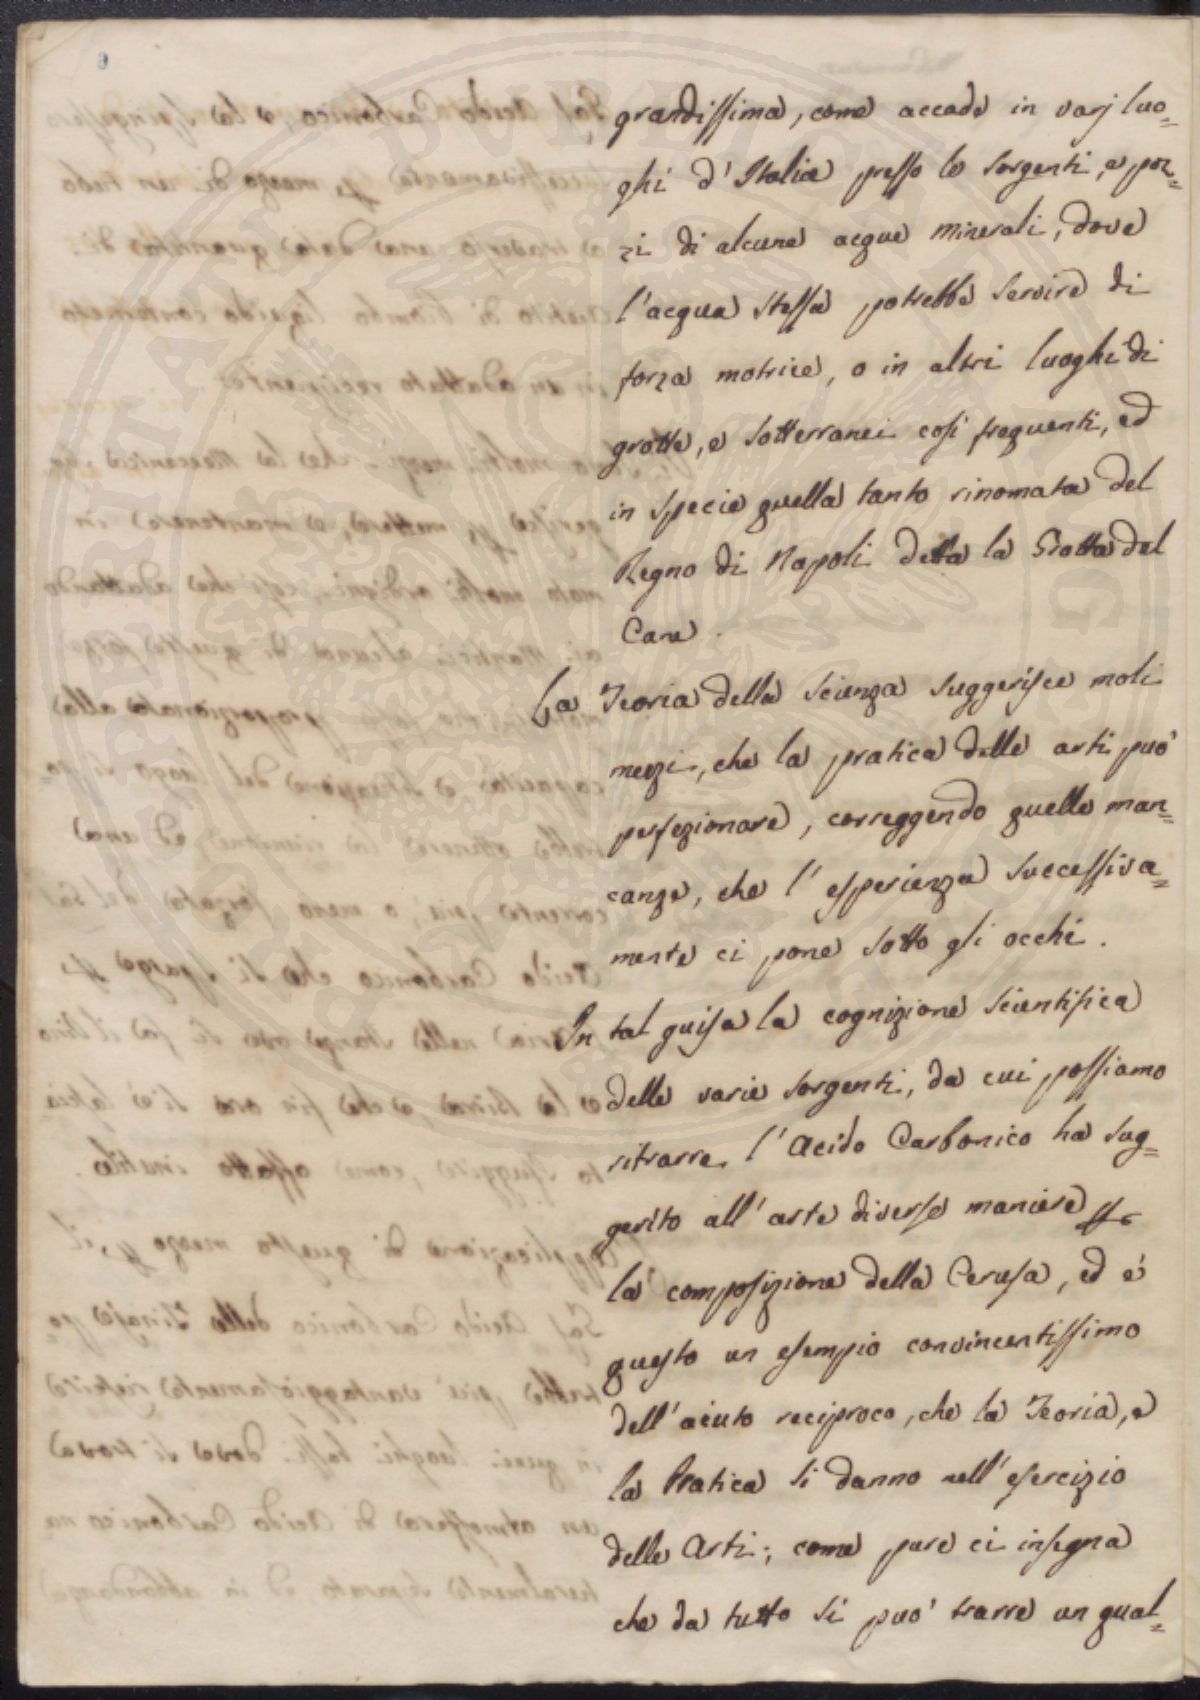 grandissima, come accade in varj luo=
ghi d'Italia presso le sorgenti, e poz=
zi di alcune acque minerali, dove
l'acqua stessa potrebbe servire di
forza motrice, o in altri luoghi di
grotte, e sotterranei così frequenti, ed
in specie quella tanto rinomata del
Regno di Napoli detta la Grotta del
Cane.
La Teoria della Scienza suggerisce molti
mezzi, che la pratica delle arti può
perfezionare, correggendo quelle man=
canze, che l'esperienza successiva=
mente ci pone sotto gli occhi.
In tal guisa la cognizione scientifica
delle varie sorgenti, da cui possiamo
ritrarre l'Acido Carbonico ha sug=
gerito all'arte diverse maniere
la composizione della Cerusa, ed è
questo un esempio convincentissimo
dell'aiuto reciproco, che la Teoria, e
la Pratica si danno nell'esercizio
delle Arti; come pure ci insegna
che da tutto si può trarre un qual=